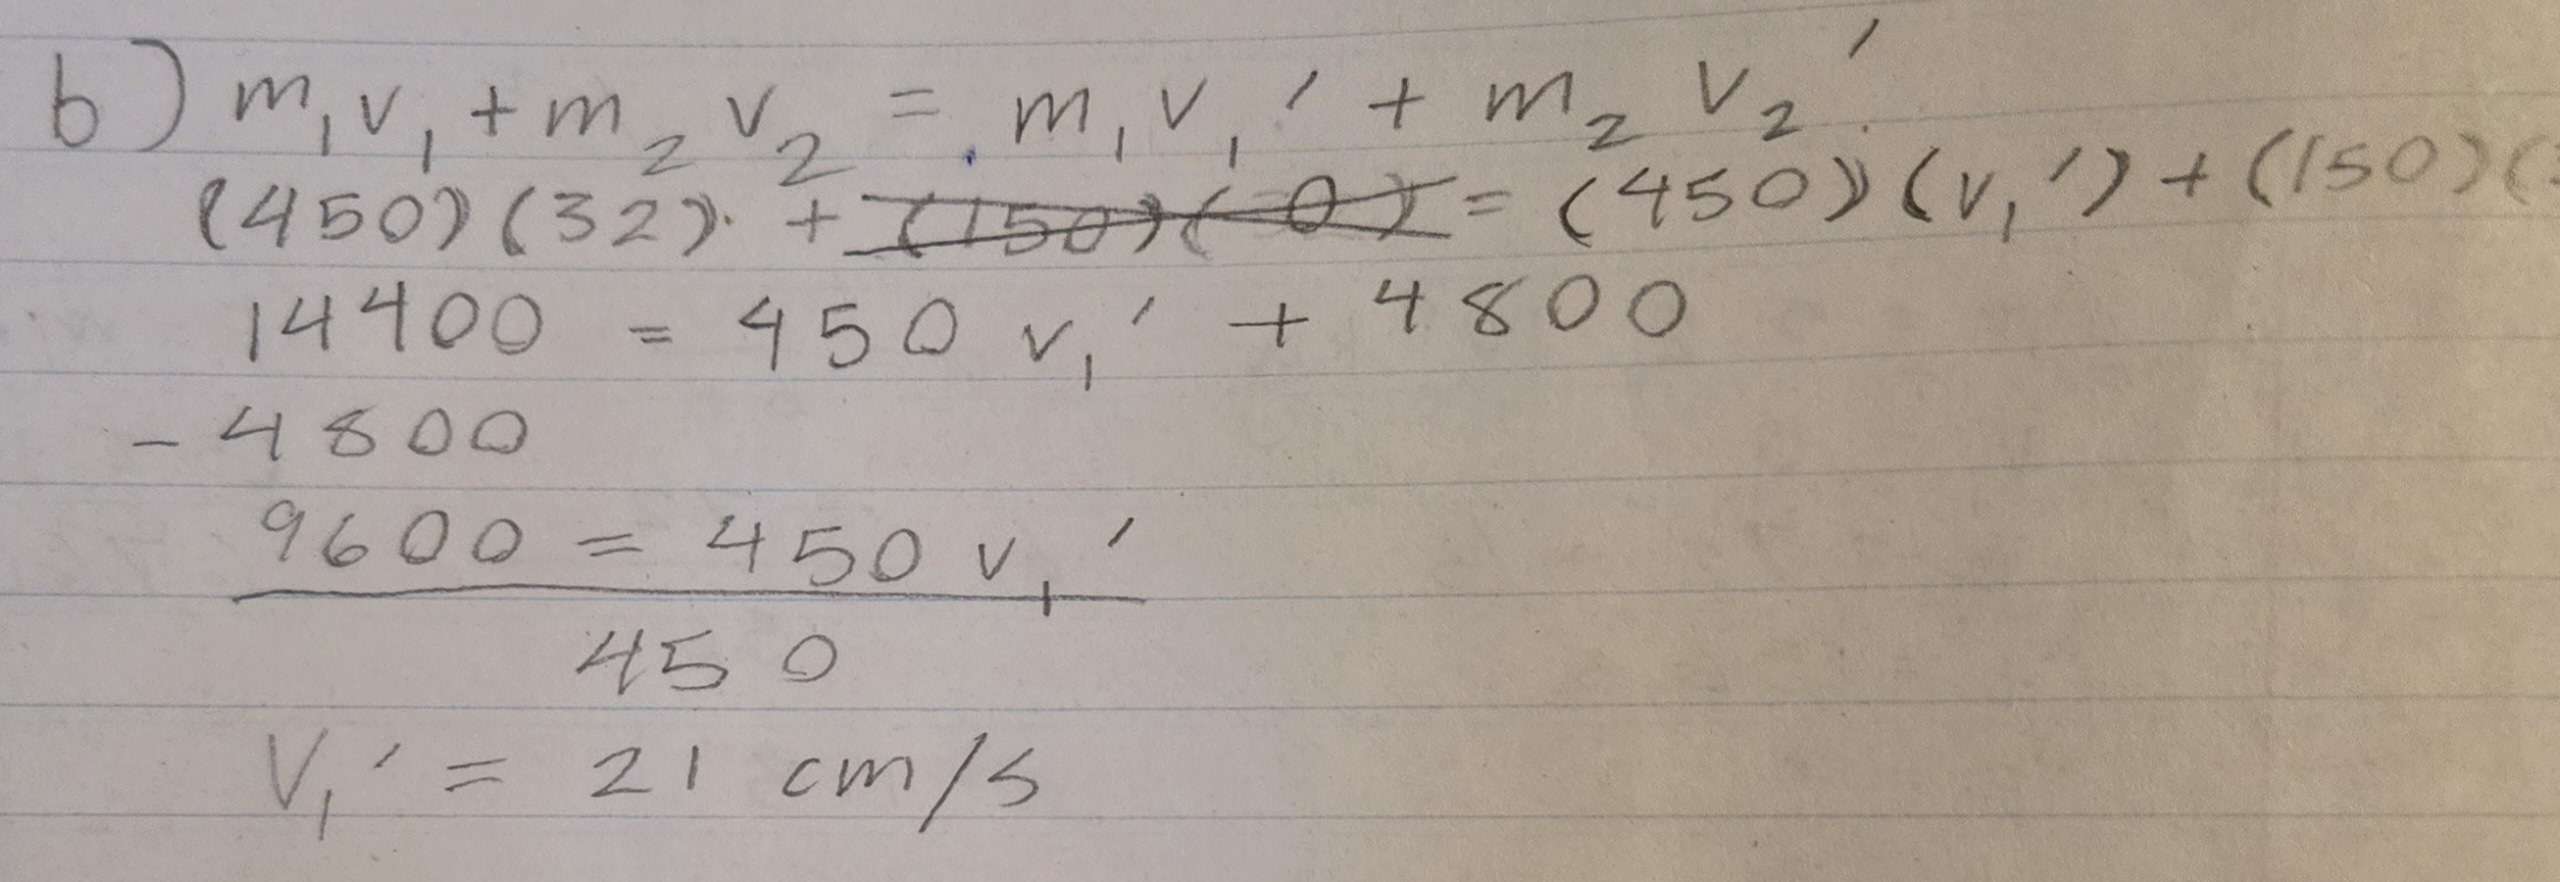 b) m₁v₁ + m₂v₂ = m₁v₁' + m₂v₂'
(450)(32) + (150)(0) = (450)(v₁') + (150)(
14400 = 450 v₁' + 4800
- 4800
9600 = 450 v₁'
450
V₁' = 21 cm/s